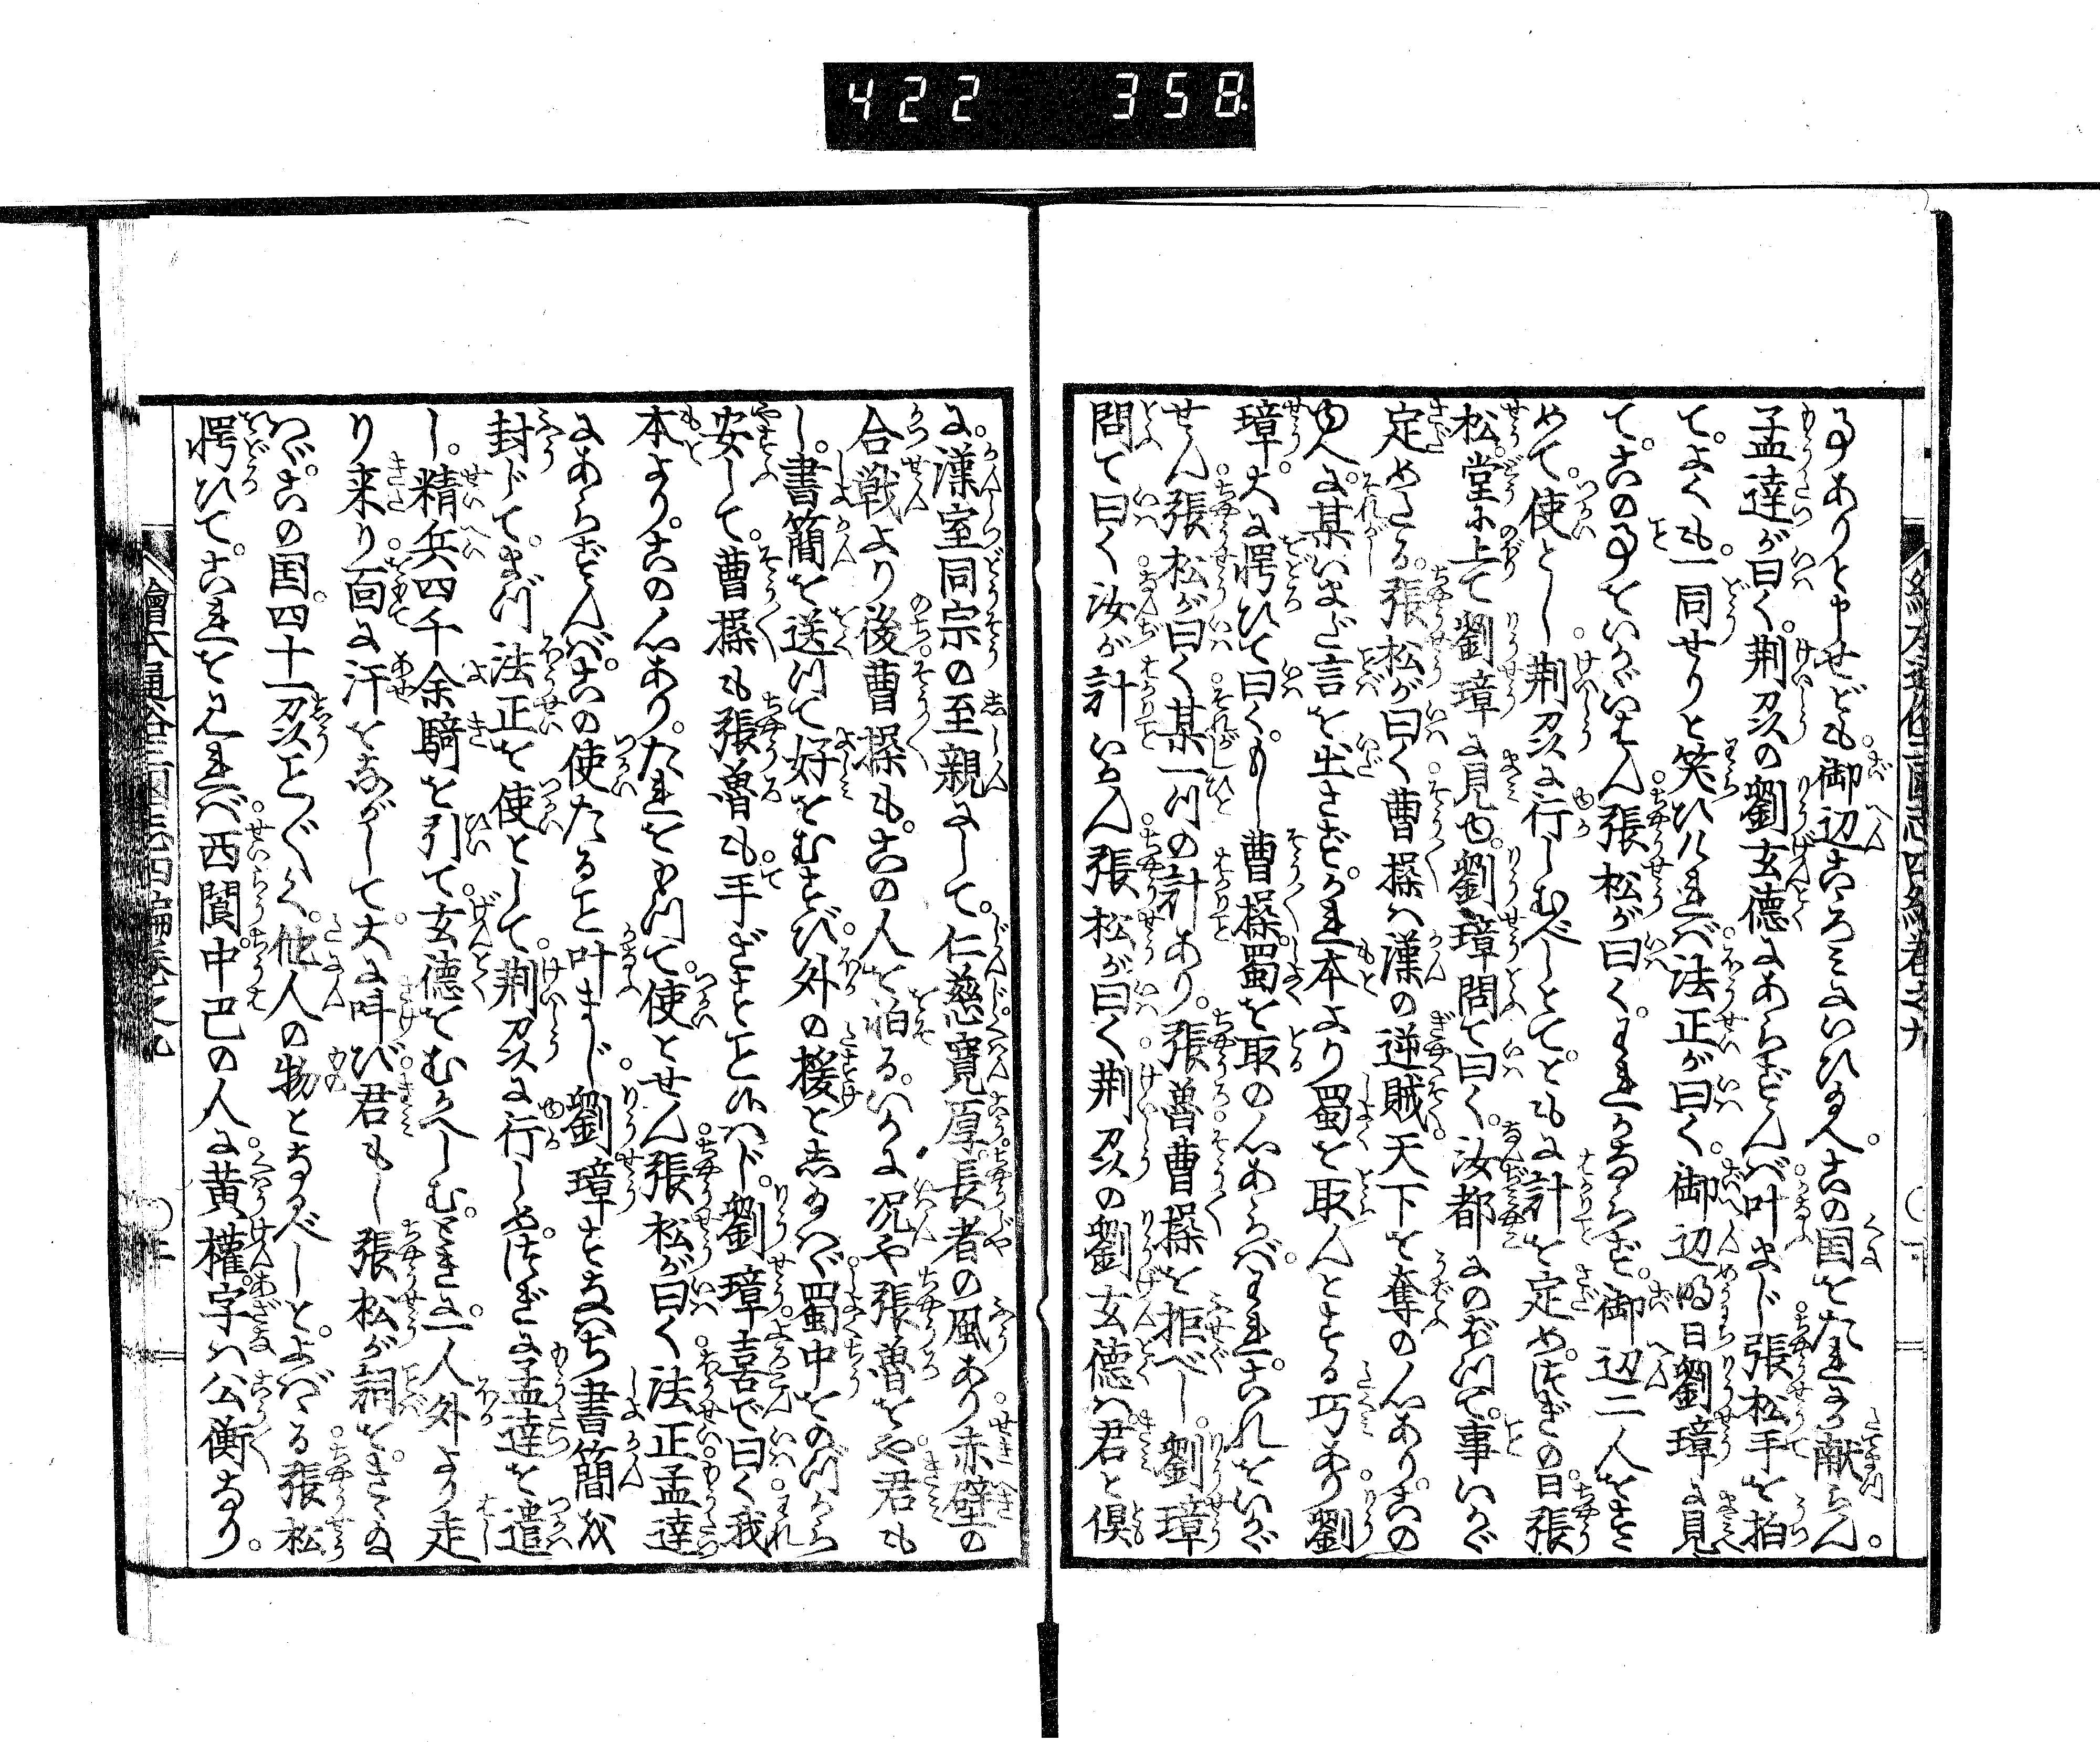 422 358
事ありと申せども。御辺こゝろみにいひ給へ。この国をたれにか献らん。
孟達が曰く。荊州の劉玄徳にあらずんば叶まじ張松手を拍
て。よくも一同せりと笑ひければ法正が曰く。御辺明日劉璋に見
て。この事をいかゞいはん張松が曰く。われかならず。御辺二人をすゝ
めて。使とし荊州に行しむべしとて。ともに計を定め。次ぎの日張
松。堂に上て劉璋に見ゆ。劉璋問て曰く。汝都にのぼりて。事いかゞ
定めたる。張松が曰く曹操は漢の逆賊天下を奪の心あり。この
ゆへに。某いまだ言を出さゞるに。本より蜀を取んとする巧あり劉
璋。大に愕ひて曰く。もし曹操。蜀を取の心あらば。われこれをいかゞ
せん張松が曰く某一つの計あり。張魯曹操を拒べし。劉璋
問て曰く汝が計いかん張松が曰く荊州の劉玄徳は。君と倶
に。漢室同宗の至親にして。仁慈寛厚。長者の風あり赤壁の
合戦より後曹操も。この人を怕る。いかに況や張魯をや君も
し。書簡を送りて好をむすび外の援と為給はゞ蜀中をのづから
安して。曹操も張魯も手ざすことゑじ。劉璋喜で曰く我
本より。この心あり。たれをもつて。使とせん張松が曰く法正孟達
にあらずんば。この使たること叶まじ。劉璋すなはち書簡を
封じて。まづ法正を使として。荊州に行しめ。次ぎに孟達を遣
し。精兵四千余騎を引て。玄徳をむかへしむ。ときに。一人外より走
り来り面に汗をながして。大に叫び君もし張松が詞をきゝ給
はゞ。この国。四十一州ことごとく。他人の物となるべしと。よばゝる張松
愕ひて。これをみれば西閬中巴の人に黄権。字は公衡なり。
繪本通俗三国志四編巻之九